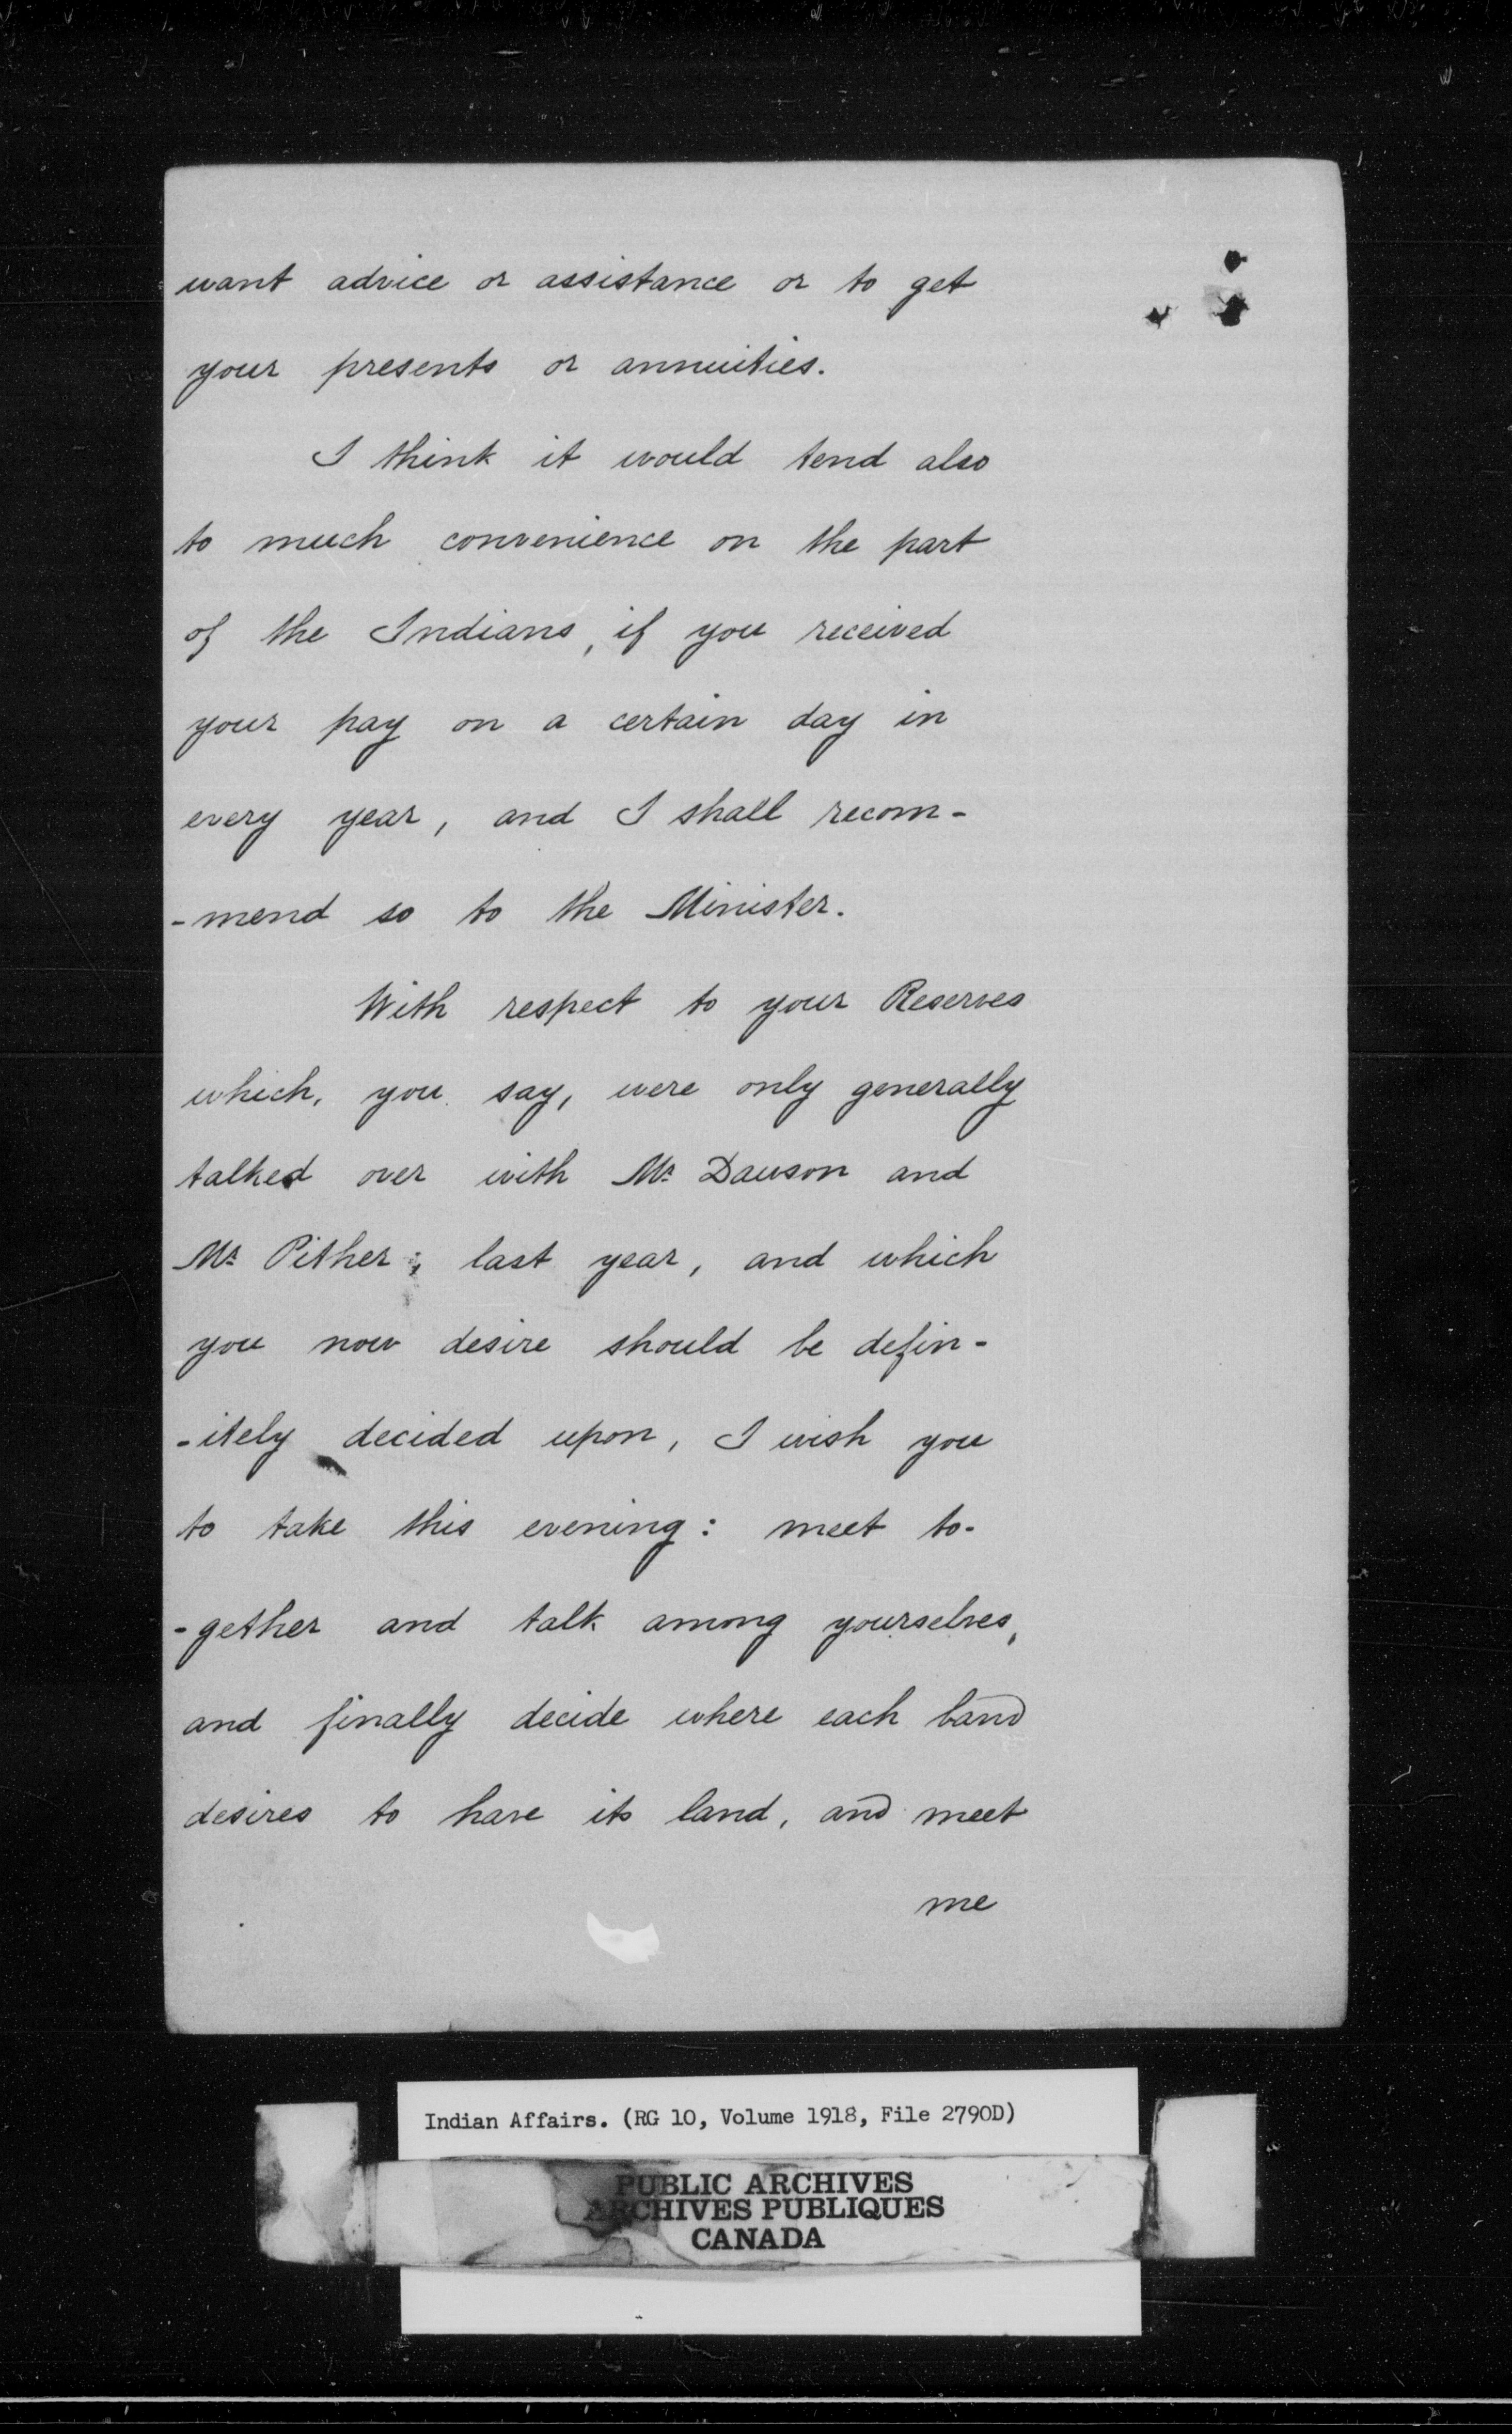 want advice or assistance or to get
your presents or annuities.
I think it would tend also
to much convenience on the part
of the Indians, if you received
your pay on a certain day in
every year, and I shall recom-
-mend so to the Minister.
With respect to your Reserves
which, you say, were only generally
talked over with Mr Dawson and
Mr Pither; last year, and which
you now desire should be defin-
-itely decided upon, I wish you
to take this evening: meet to-
-gether and talk among yourselves,
and finally decide where each band
desires to have its land, and meet
me
Indian Affairs. (RG 10, Volume 1918, File 2790D)
PUBLIC ARCHIVES
ARCHIVES PUBLIQUES
CANADA